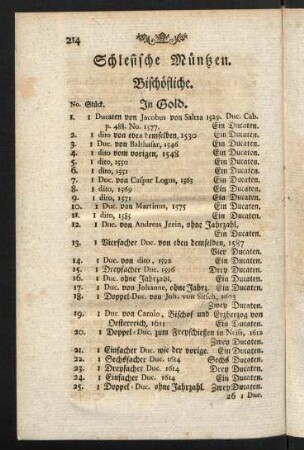 214
Schlesische Müntzen.
Bischöfliche.
No. Stück. In Gold.
1. 1 Ducaten von Jacobus von Saltza 1529. Duc. Cab.
p. 488. No. 1577. Ein Ducaten.
2. 1 dito von eben demselben, 1530 Ein Ducaten.
3. 1 Duc. von Balthasar, 1546 Ein Ducaten.
4. 1 dito vom vorigen, 1548 Ein Ducaten.
5. 1 dito, 1550 Ein Ducaten.
6. 1 dito, 1551 Ein Ducaten.
7. 1 Duc. von Caspar Logus, 1563 Ein Ducaten.
8. 1 dito, 1569 Ein Ducaten.
9. 1 dito, 1571 Ein Ducaten.
10. 1 Duc. von Martinus, 1575 Ein Ducaten.
11. 1 dito, 1585 Ein Ducaten.
12. 1 Duc. von Andreas Jerin, ohne Jahrzahl,
Ein Ducaten.
13. 1 Vierfacher Duc. von eben demselben, 1587
Vier Ducaten.
14. 1 Duc. von dito, 1592 Ein Ducaten.
15. 1 Dreyfacher Duc. 1596 Drey Ducaten.
16. 1 Duc. ohne Jahrzahl. Ein Ducaten.
17. 1 Duc. von Johanne, ohne Jahrz. Ein Ducaten.
18. 1 Doppel-Duc. von Joh. von Sitsch, 1603
Zwey Ducaten.
19. 1 Duc. von Carolo, Bischof und Ertzherzog von
Oesterreich, 1611 Ein Ducaten.
20. 1 Doppel-Duc. zum Freyschießen in Neiß, 1612
Zwey Ducaten.
21. 1 Einfacher Duc. wie der vorige. Ein Ducaten.
22. 1 Sechsfacher Duc. 1614 Sechs Ducaten.
23. 1 Dreyfacher Duc. 1614 Drey Ducaten.
24. 1 Einfacher Duc. 1614 Ein Ducaten.
25. 1 Doppel-Duc. ohne Jahrzahl. Zwey Ducaten.
26 1 Duc.